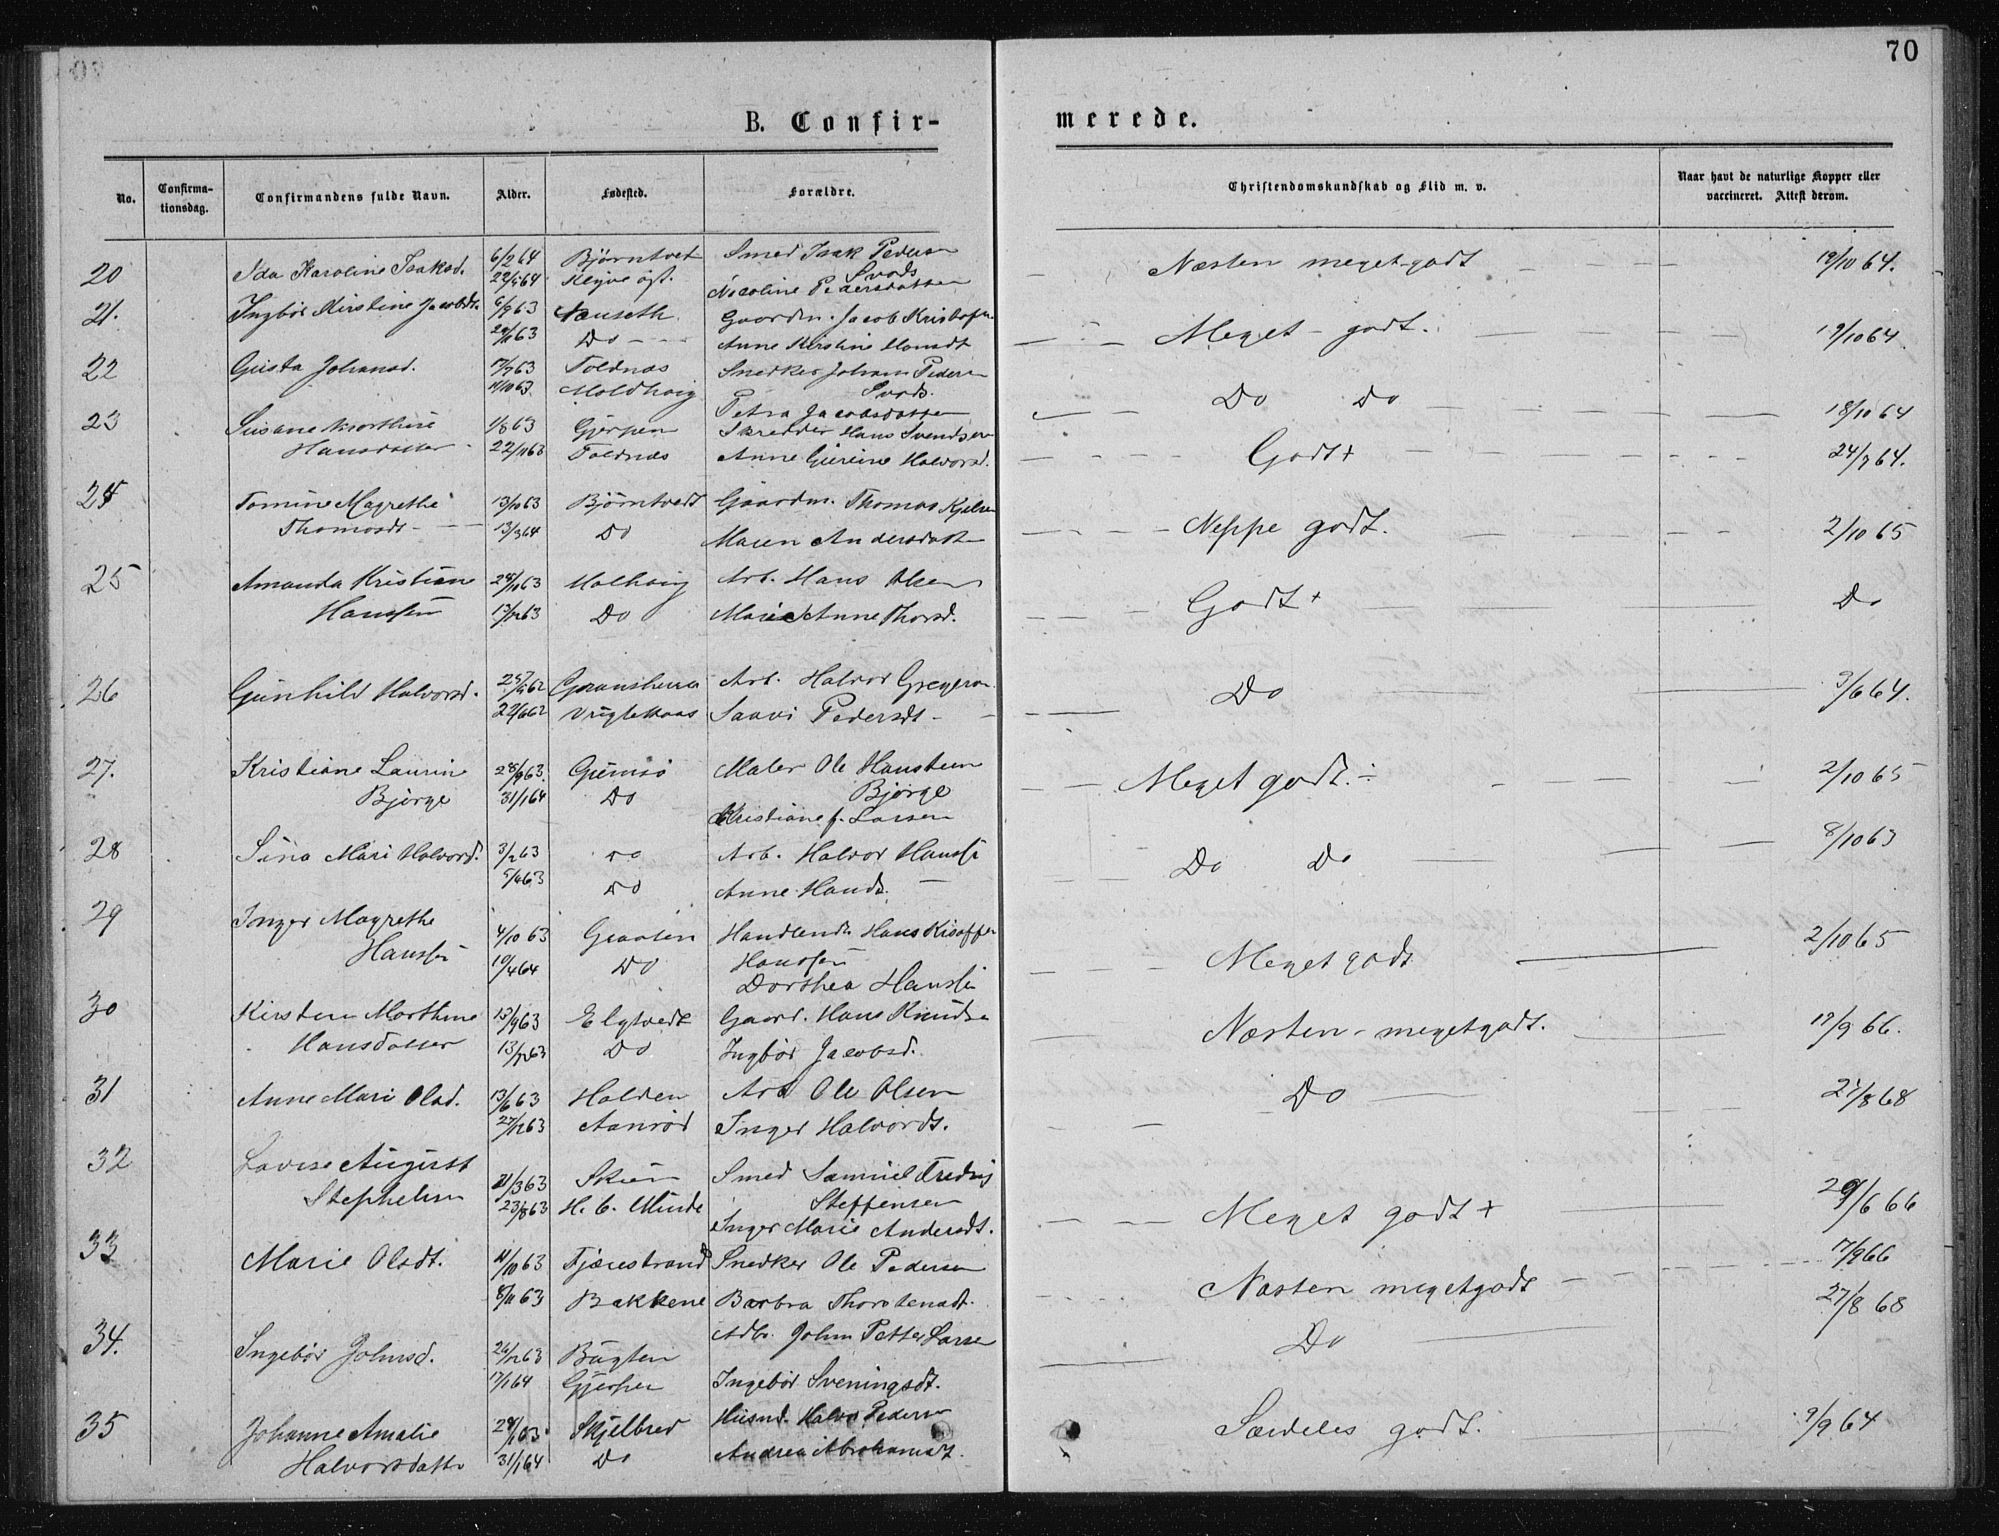 70
B. Confir-
merede.
No.
Confirma-
tionsdag.
Confirmandens fulde Navn.
Alder.
Fødested.
Forældre.
Christendomskundskab og Flid m. v.
Naar havt de naturlige Kopper eller
vaccineret. Attest derom.
20 Ida Karoline Isaksd. 6/2 64 Bjørntvet Smed Isak Pedersen Næsten meget godt 19/10 64.
Nicoline Pedersdatter
21. Ingbør Kirstine Jacobsdt. 6/9 63 Gaardm. Jacob Kristofer Meget godt. 19/10 64
29/11 63 Do Anne Kirstine Hansdt
22 Gusta Johansd. 17/7 63 Toldnæs Snedker Johan Pedersen Do Do 18/10 64
11/10 63 Moldhaug
Petra Jacobsdatter
23 Susane Marthine 1/8 63 Gjerpen Skredder Hans Svendsen Godt + 24/7 64.
Hansdatter 22/11 63 Toldnæs Anne Gurine Halvorsd.
24 Tomine Magrethe 13/10 63 Bjørntvedt Gaardm. Thomas Kjelsen Neppe godt. 2/10 65
Thomasdt 13/3 64 Do Maren Andersdatter
25 Amanda Kristiane 28/10 63 Arb. Hans Olsen Godt + Do
Hanssen 13/12 63 Do Marie Anne Thorsd.
26 Gunhild Halvorsd. 25/4 62 Gransherra Arb. Halvor Gregersen Do 3/6 64.
22/6 62 Saavi Pedersdt
27. Kristiane Laurine 28/9 63. Gimsø Maler Ole Hanstein Meget godt ÷ 2/10 65
Bjørge 31/1 64 Do Bjørge
Kristiane f. Larsen
28 Sina Mari Halvorsd. 3/2 63 Do Arb. Halvor Hanssen Do Do 8/10 63
5/4 63 Do Anne Hansd.
29 Inger Magrethe
Hanssen 4/10 63 Graaten Handlende Hans Kristoffer Meget godt 2/10 65
10/4 64 Do Hanssen
Dorthea Hanssen
30 Kirsten Marthine 15/9 63 Elgtvedt Gaard. Hans Knudsen Næsten meget godt. 17/9 66.
Hansdatter 13/12 63 Do Ingbør Jacobsd.
31 Anne Mari Olsd. 13/6 63 Holden Arb Ole Olsen Do 27/8 68
27/12 63 Aanrød Inger Halvordt.
32 Lovise August
Stephelsen 21/3 63 Skien Smed Samuel Fredrig Meget godt + 29/6 66
23/8 63 H. C. Minde Steffensen
Inger Marie Andersdt.
33 Marie Olsdt. 11/10 63 Fjærestrand Snedker Ole Pedersen Næsten meget godt 17/9 66
8/11 63 Bakkene Barbra Thorstensdt.
34. Ingebør Johnsd. 26/12 63 Bugten Arb. John Petter Larsen Do 27/8 68
17/1 64 Gjerpen Ingebør Sveningsdt.
35 Johanne Amalie 29/10 63 Skjelbred Husmd. Halvor Pedersen Særdeles godt. 9/9 64
Halvorsdatter 31/1 64 Do Andrea Abrahamsdt.